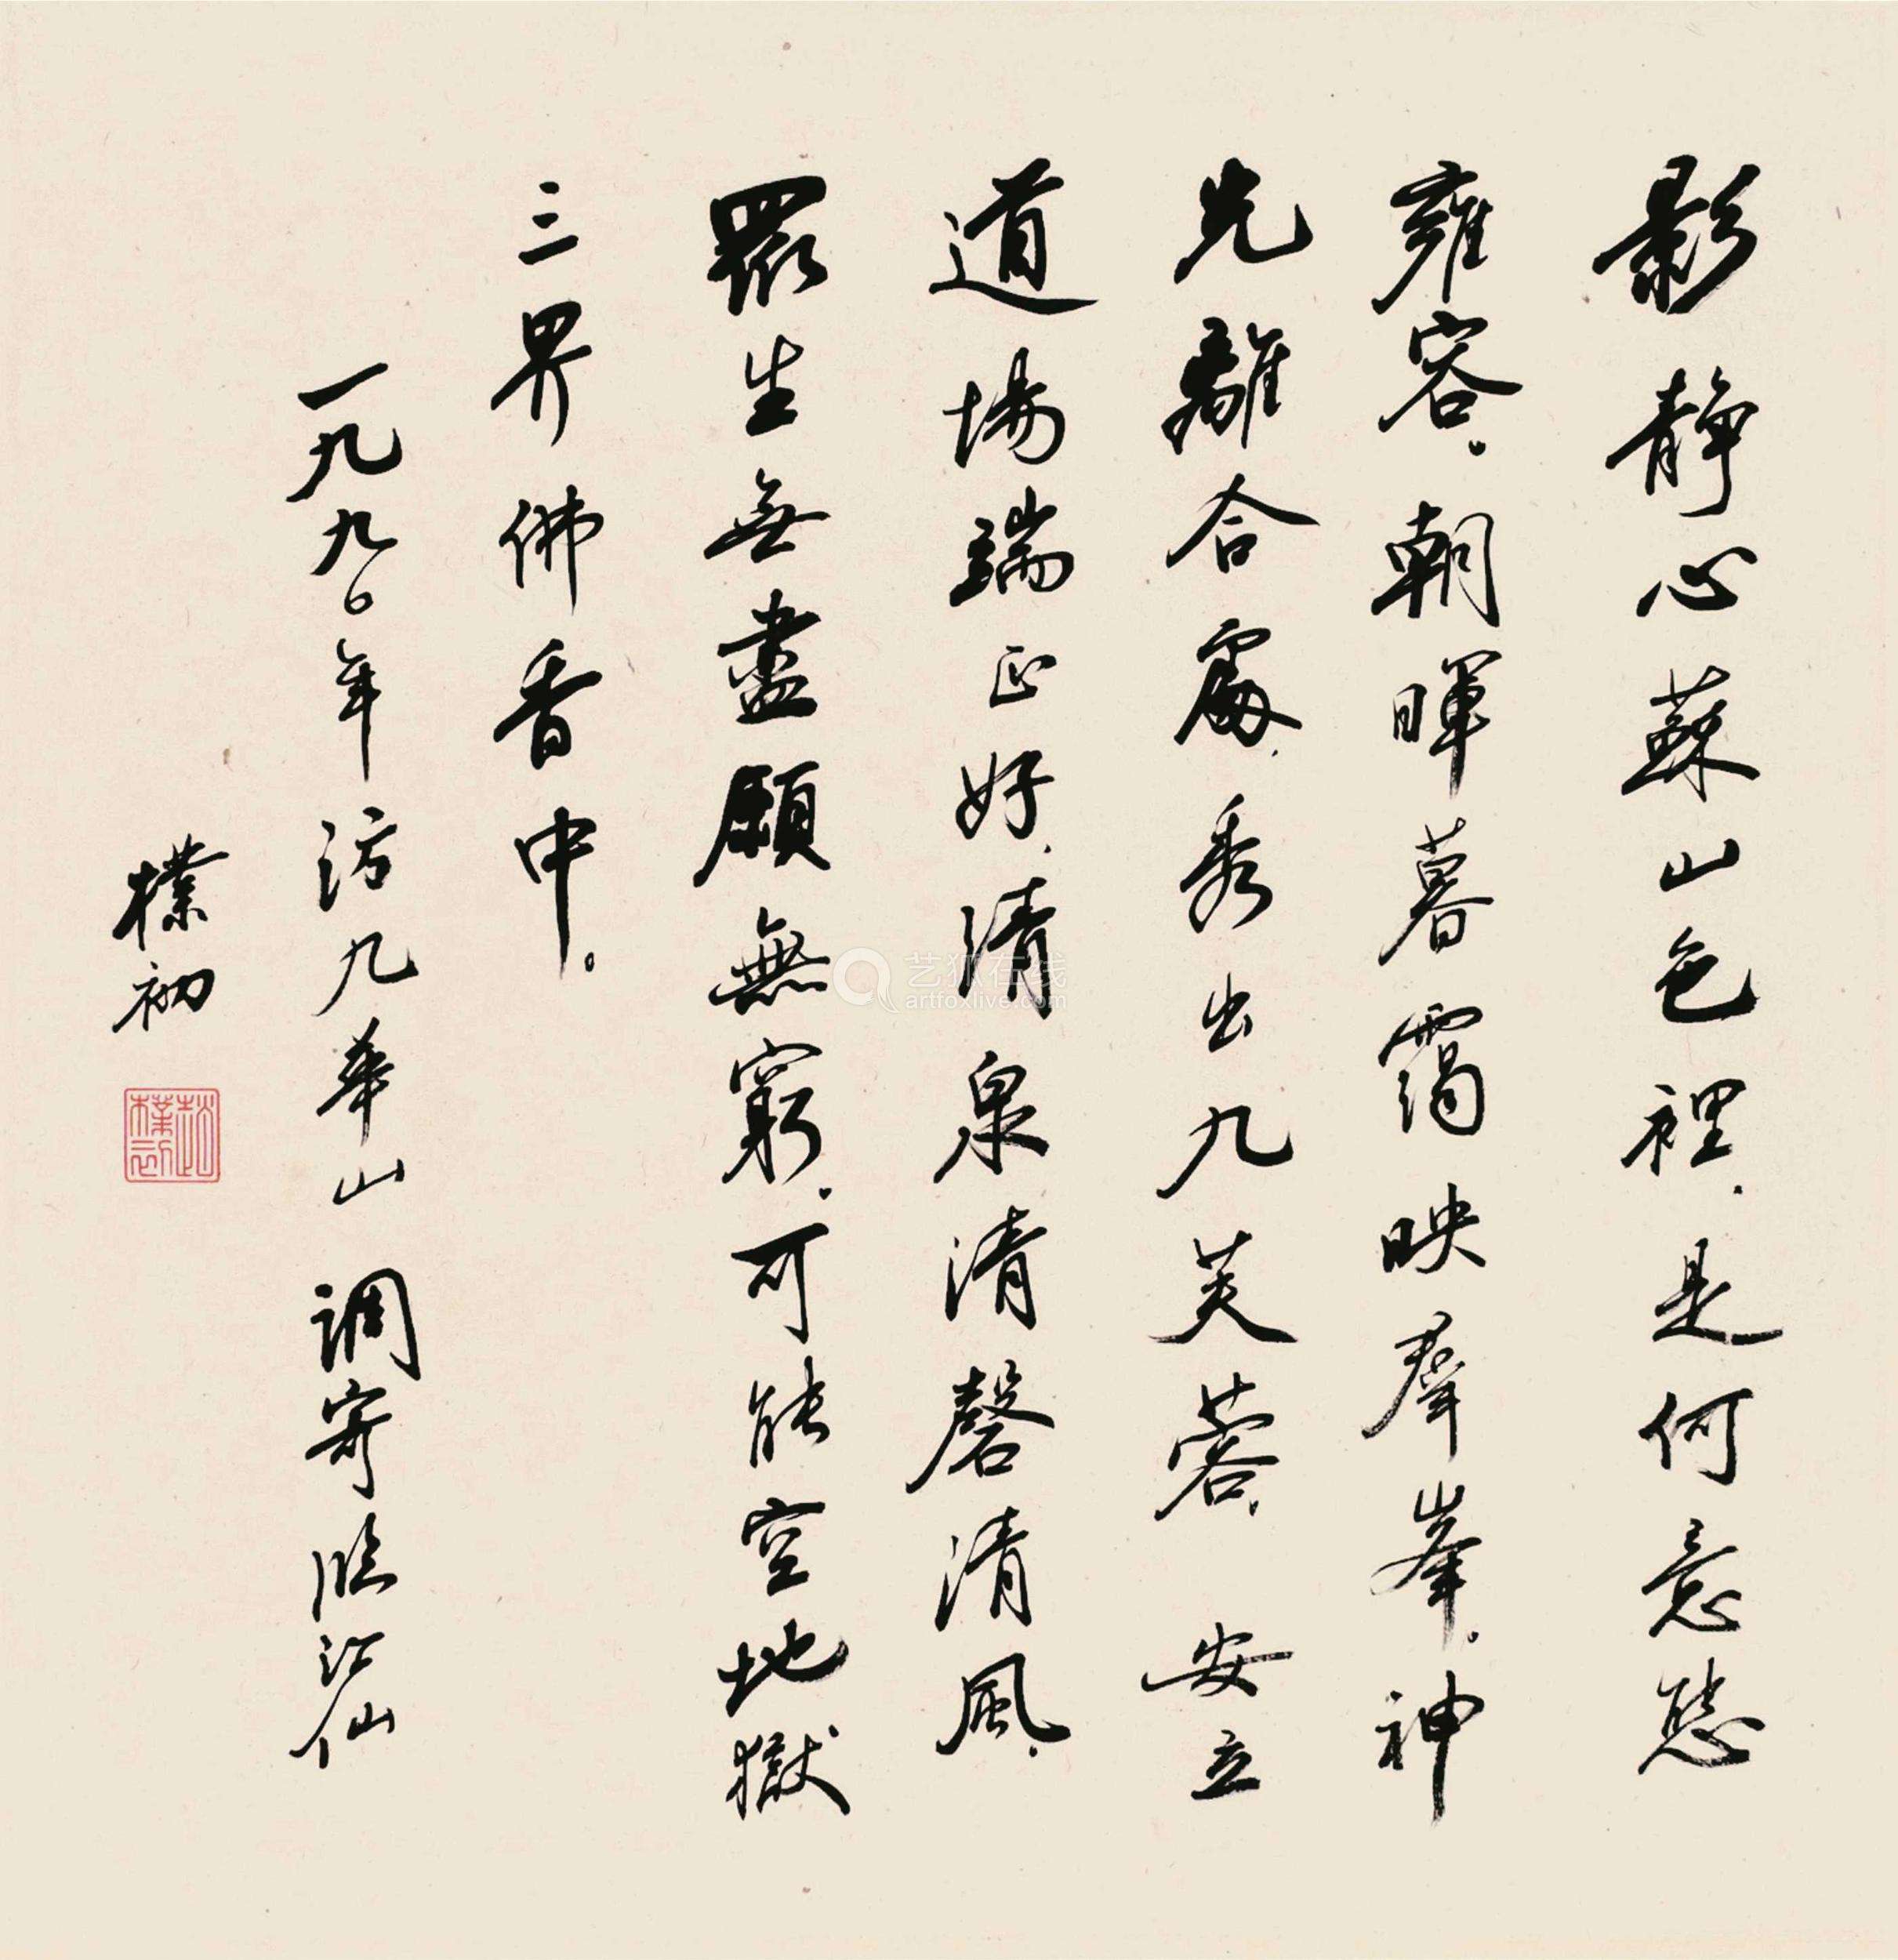 影静心蘇山色裡，是何意態
雍容。朝暉暮靄映羣峯。神
光離合處，秀出九芙蓉。安立
道場端正好，清泉清磬清風。
眾生無盡願無窮。可能空地獄，
三界佛香中。
一九九〇年访九华山 调寄临江仙
樸初
趙樸初
艺狐在线
artfoxlive.com